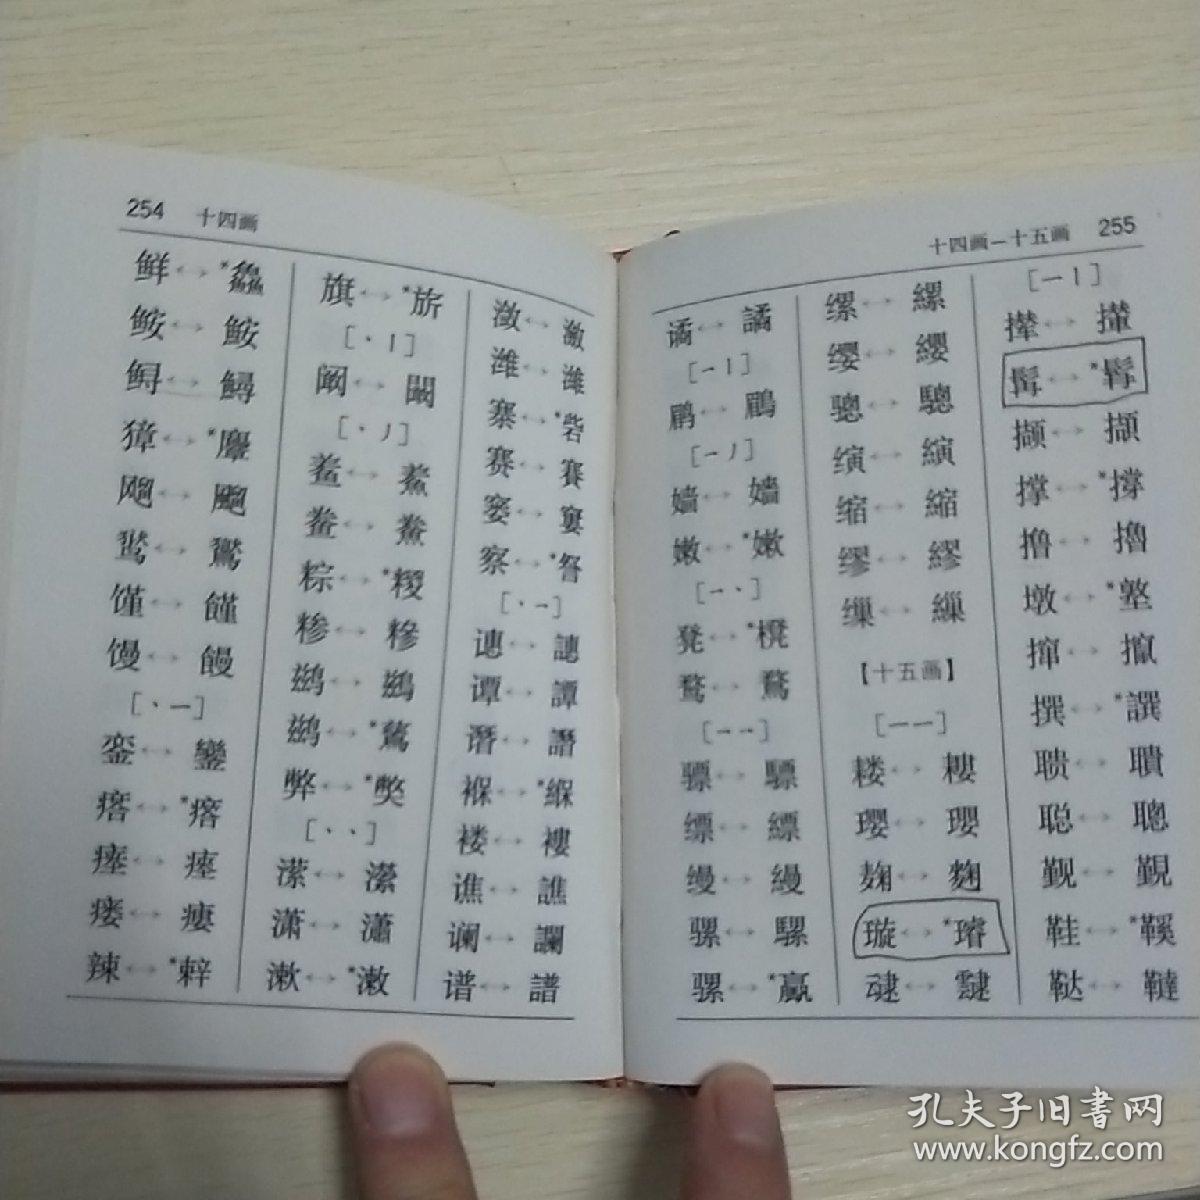 254 十四画
鲜↔*鱻
鮟↔鮟
鲟↔鱘
獐↔*麞
飗↔飀
鹫↔鷲
馑↔饉
馒↔饅
[丶一]
銮↔鑾
瘩↔*瘩
瘗↔瘞
瘘↔瘻
辣↔*辢
旗↔*旂
[丶丨]
阚↔闞
[丶丿]
鲝↔鮺
鲞↔鯗
粽↔*糉
糁↔糝
鹚↔鷀
鹚↔*鶿
弊↔*獘
[丶丶]
潆↔瀠
潇↔瀟
漱↔*潄
潋↔瀲
潍↔濰
寨↔*砦
赛↔賽
窭↔窶
察↔*詧
[丶一]
谭↔譚
谮↔譖
褓↔*緥
褛↔褸
谯↔譙
谰↔讕
谱↔譜
十四画—十五画 255
谲↔譎
[一丨]
鹛↔鶥
[一丿]
嫱↔嬙
嫩↔*嫰
[一丶]
凳↔*櫈
骛↔騖
[一一]
骠↔驃
缥↔縹
缦↔縵
骡↔騾
骡↔*驘
缧↔縲
缨↔纓
骢↔驄
缜↔縯
缩↔縮
缪↔繆
缫↔繅
【十五画】
[一一]
耧↔耬
璎↔瓔
麹↔麴
璇↔*璿
叇↔靆
[一丨]
撵↔攆
髯↔*髥
撷↔擷
撑↔*撐
撸↔擼
墩↔*墪
撺↔攛
撰↔*譔
聩↔聵
聪↔聰
觐↔覲
鞋↔*鞵
鞑↔韃
孔夫子旧书网
www.kongfz.com